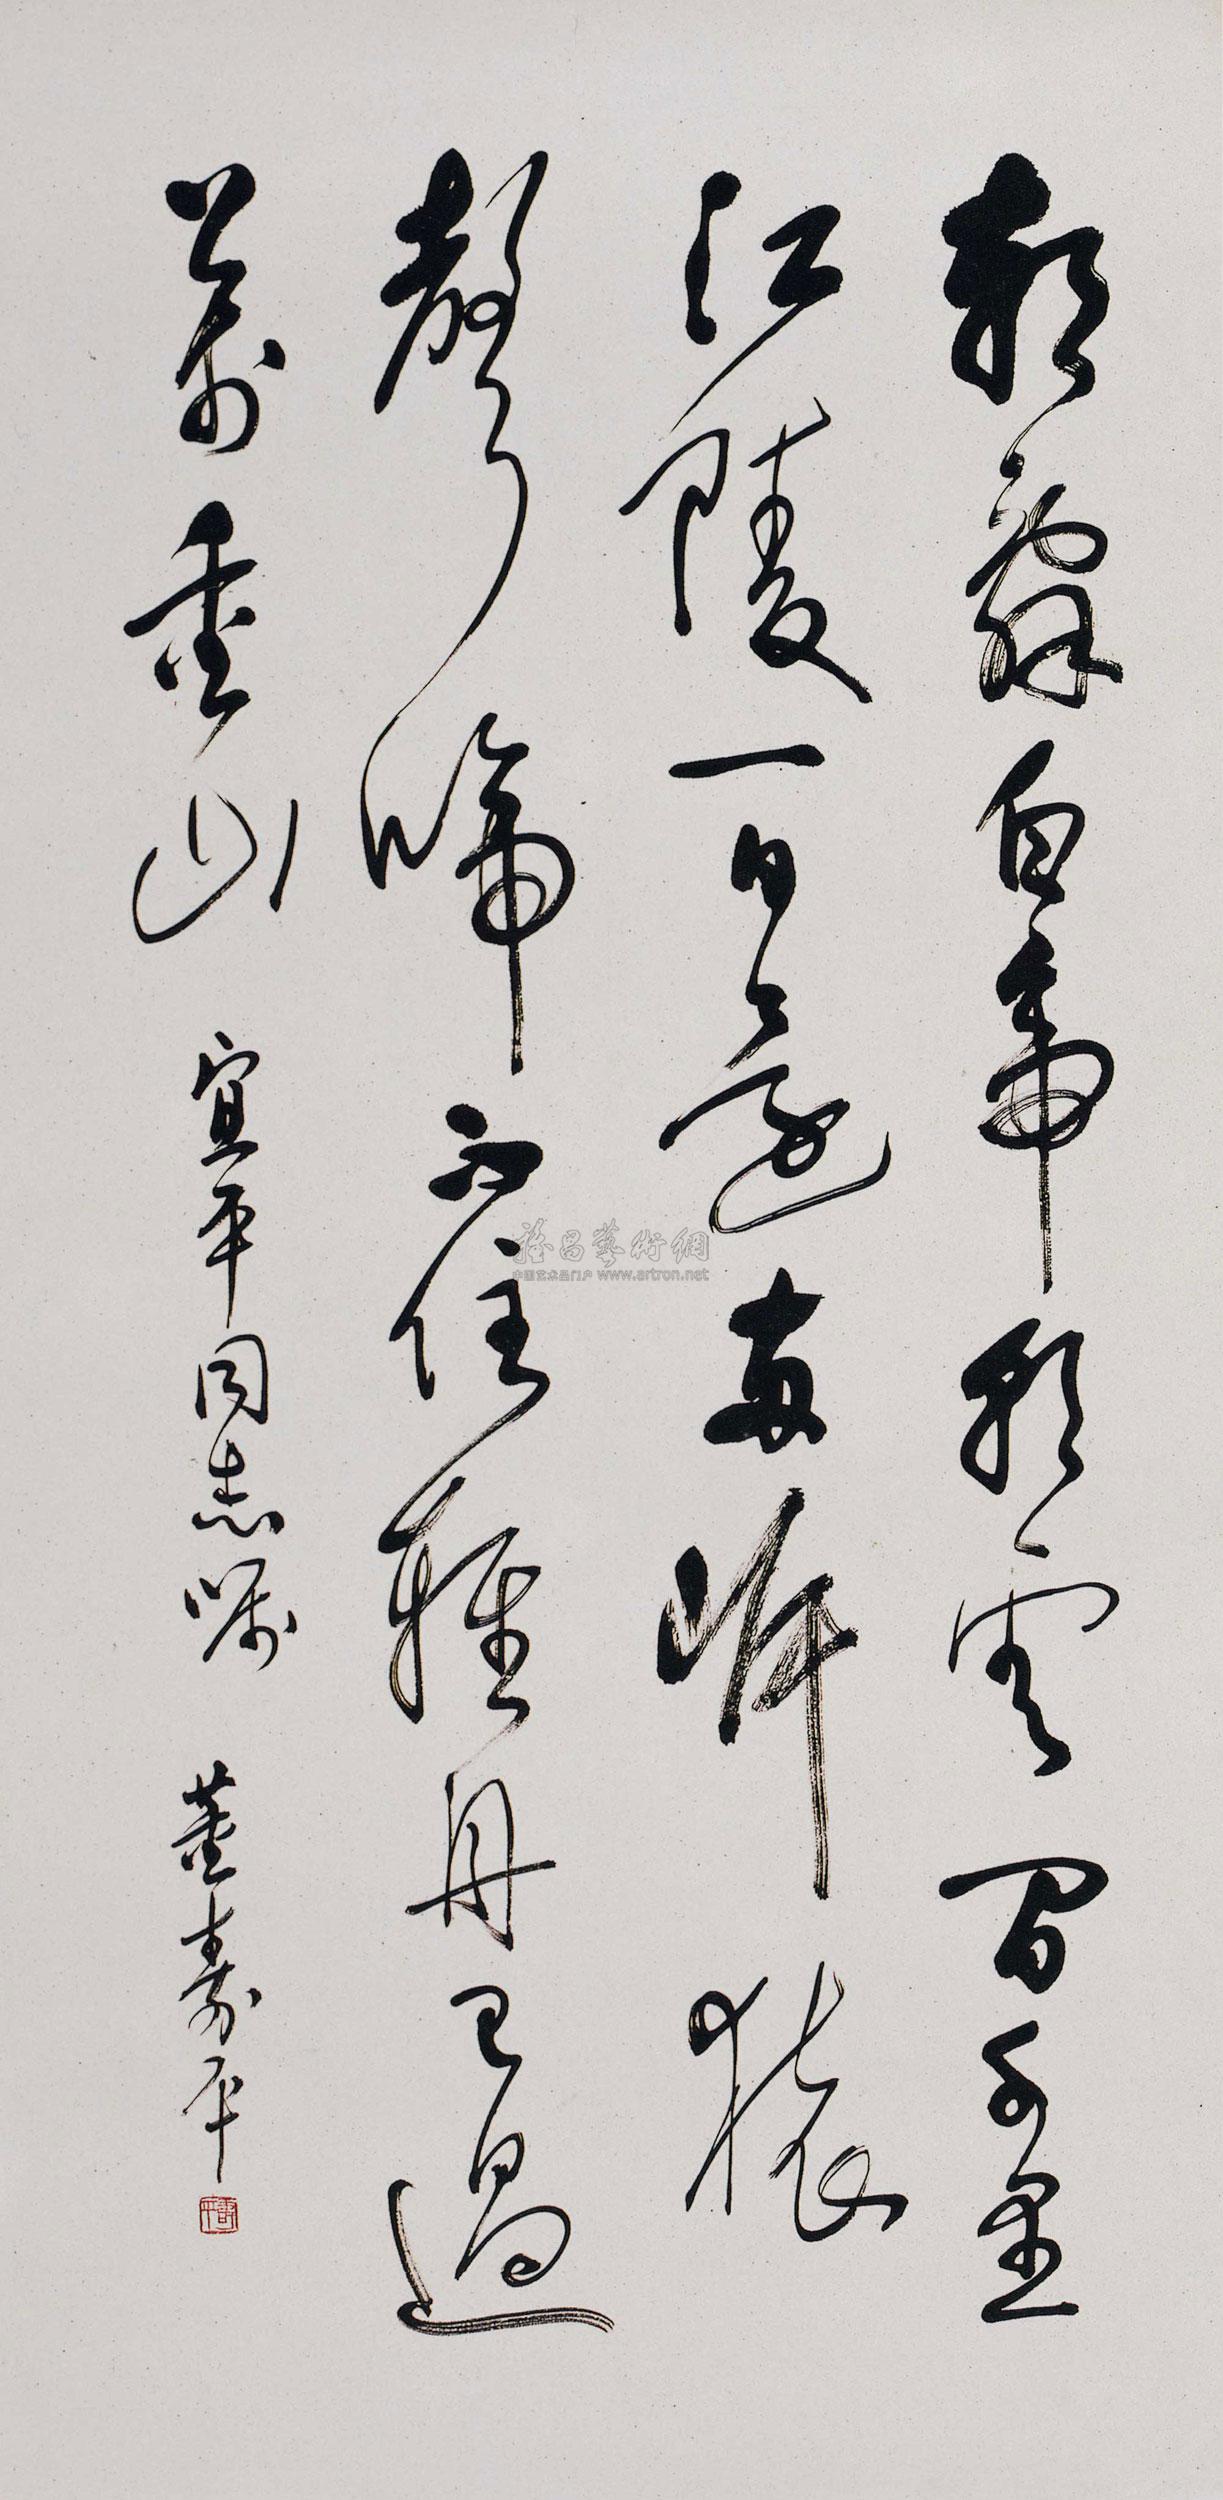 朝辭白帝彩雲間千里
江陵一日還兩岸猿
聲啼不住輕舟已過
萬重山 宜平同志嘱 董寿平
雅昌藝術網
中国艺术品门户 www.artron.net